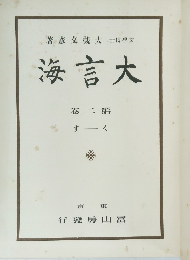 文學博士 大槻文彦著
大言海
第二卷
く——す
東京
冨山房發行